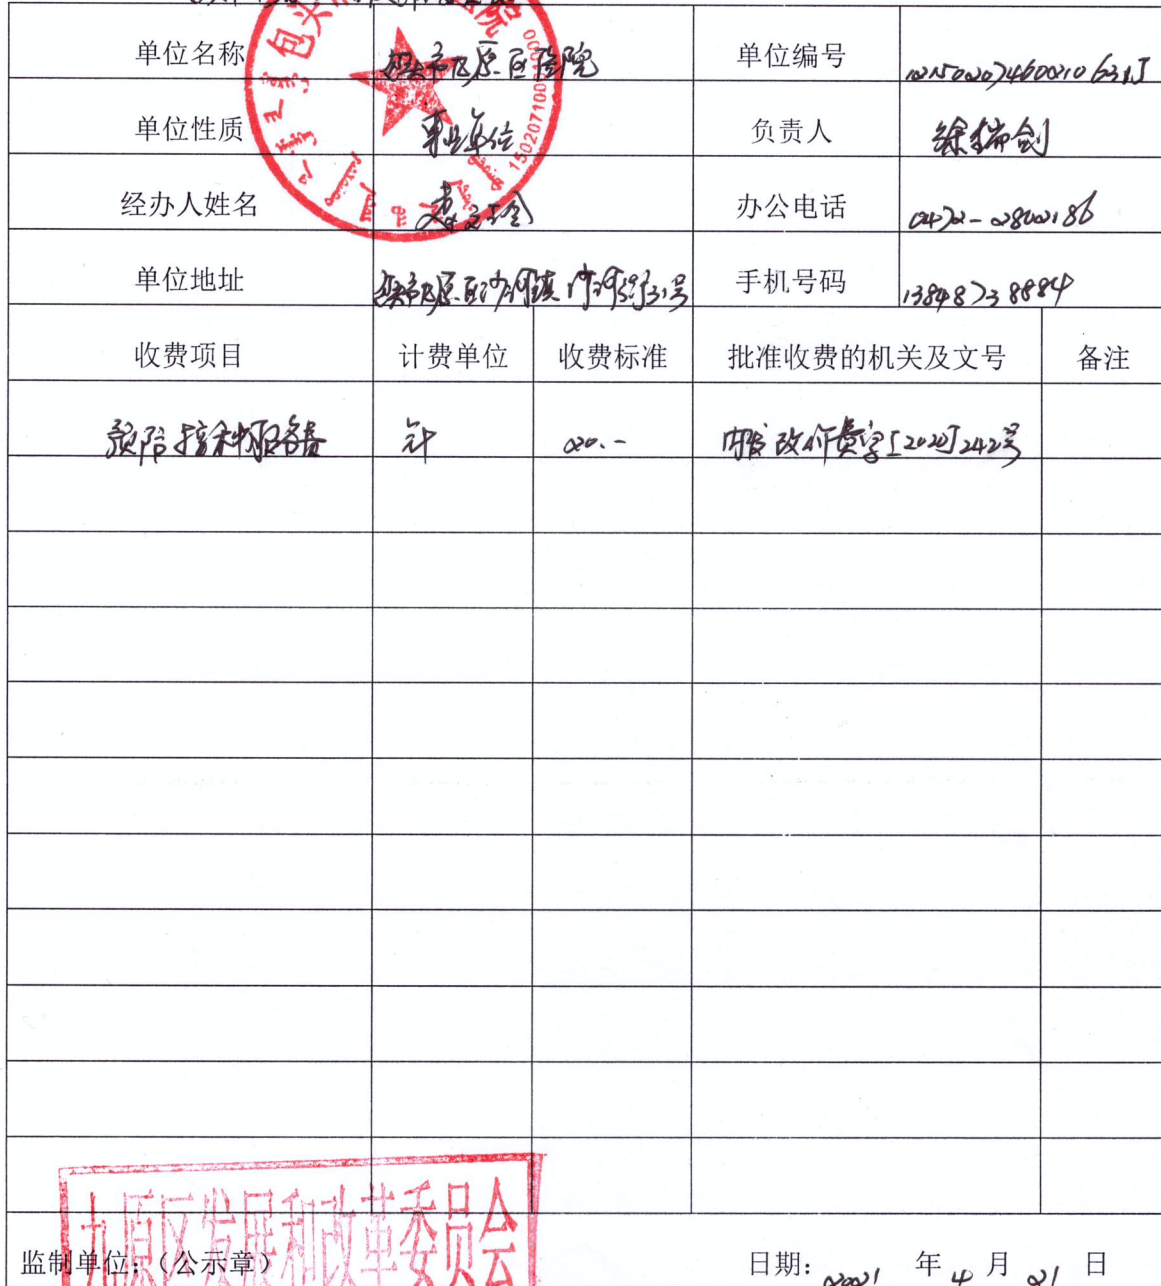 单位名称 包头市九原区医院 单位编号
单位性质 事业单位 负责人 徐瑞剑
经办人姓名 办公电话 0472-2802186
单位地址 包头市九原区沙河镇沙河街31号 手机号码 13848738884
收费项目 计费单位 收费标准 批准收费的机关及文号 备注
预防接种服务费 针 20.- 内发改价费字[2020]242号
九原区发展和改革委员会
监制单位：（公示章） 日期： 2021 年 4 月 21 日